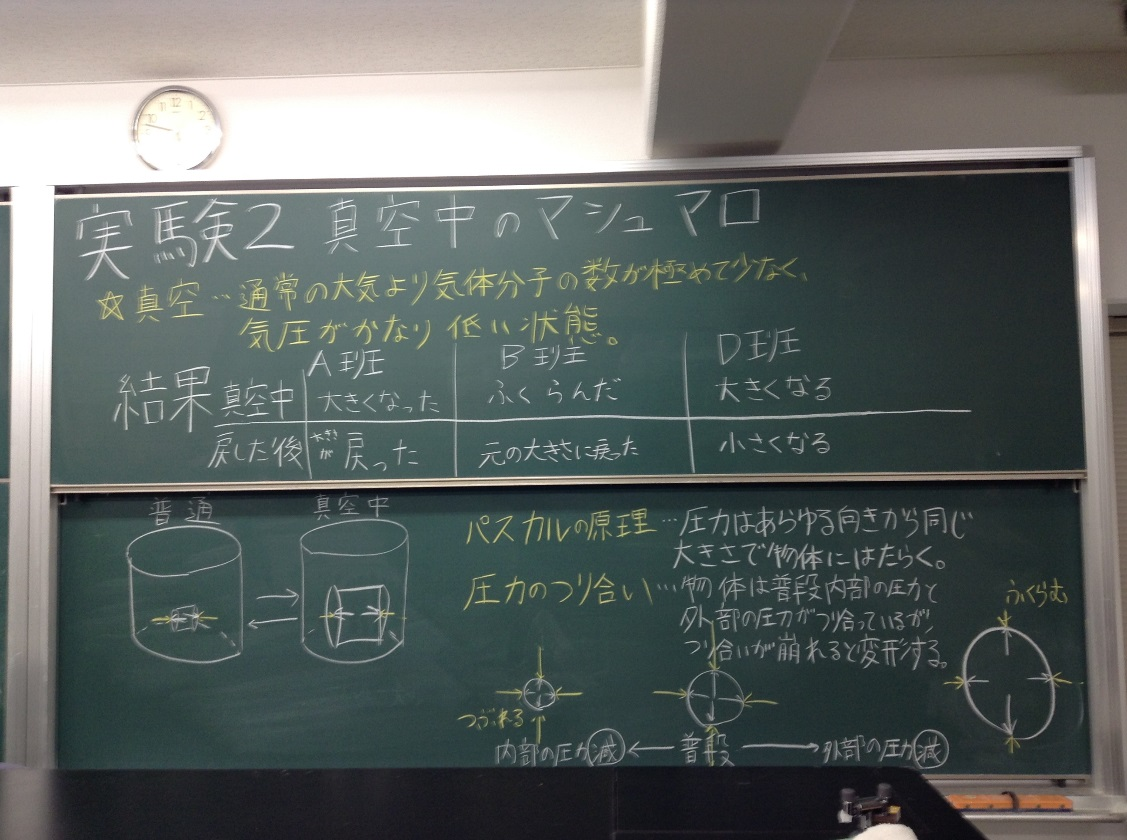 実験2 真空中のマシュマロ
☆真空…通常の大気より気体分子の数が極めて少なく、
気圧がかなり低い状態。
A班 B班 D班
結果 真空中 大きくなった ふくらんだ 大きくなる
戻した後 大きさが戻った 元の大きさに戻った 小さくなる
普通 真空中
パスカルの原理…圧力はあらゆる向きから同じ
大きさで物体にはたらく。
圧力のつり合い…物体は普段内部の圧力と
外部の圧力がつり合っているが、
つり合いが崩れると変形する。
ふくらむ
つぶれる
内部の圧力減 ← 普段 → 外部の圧力減